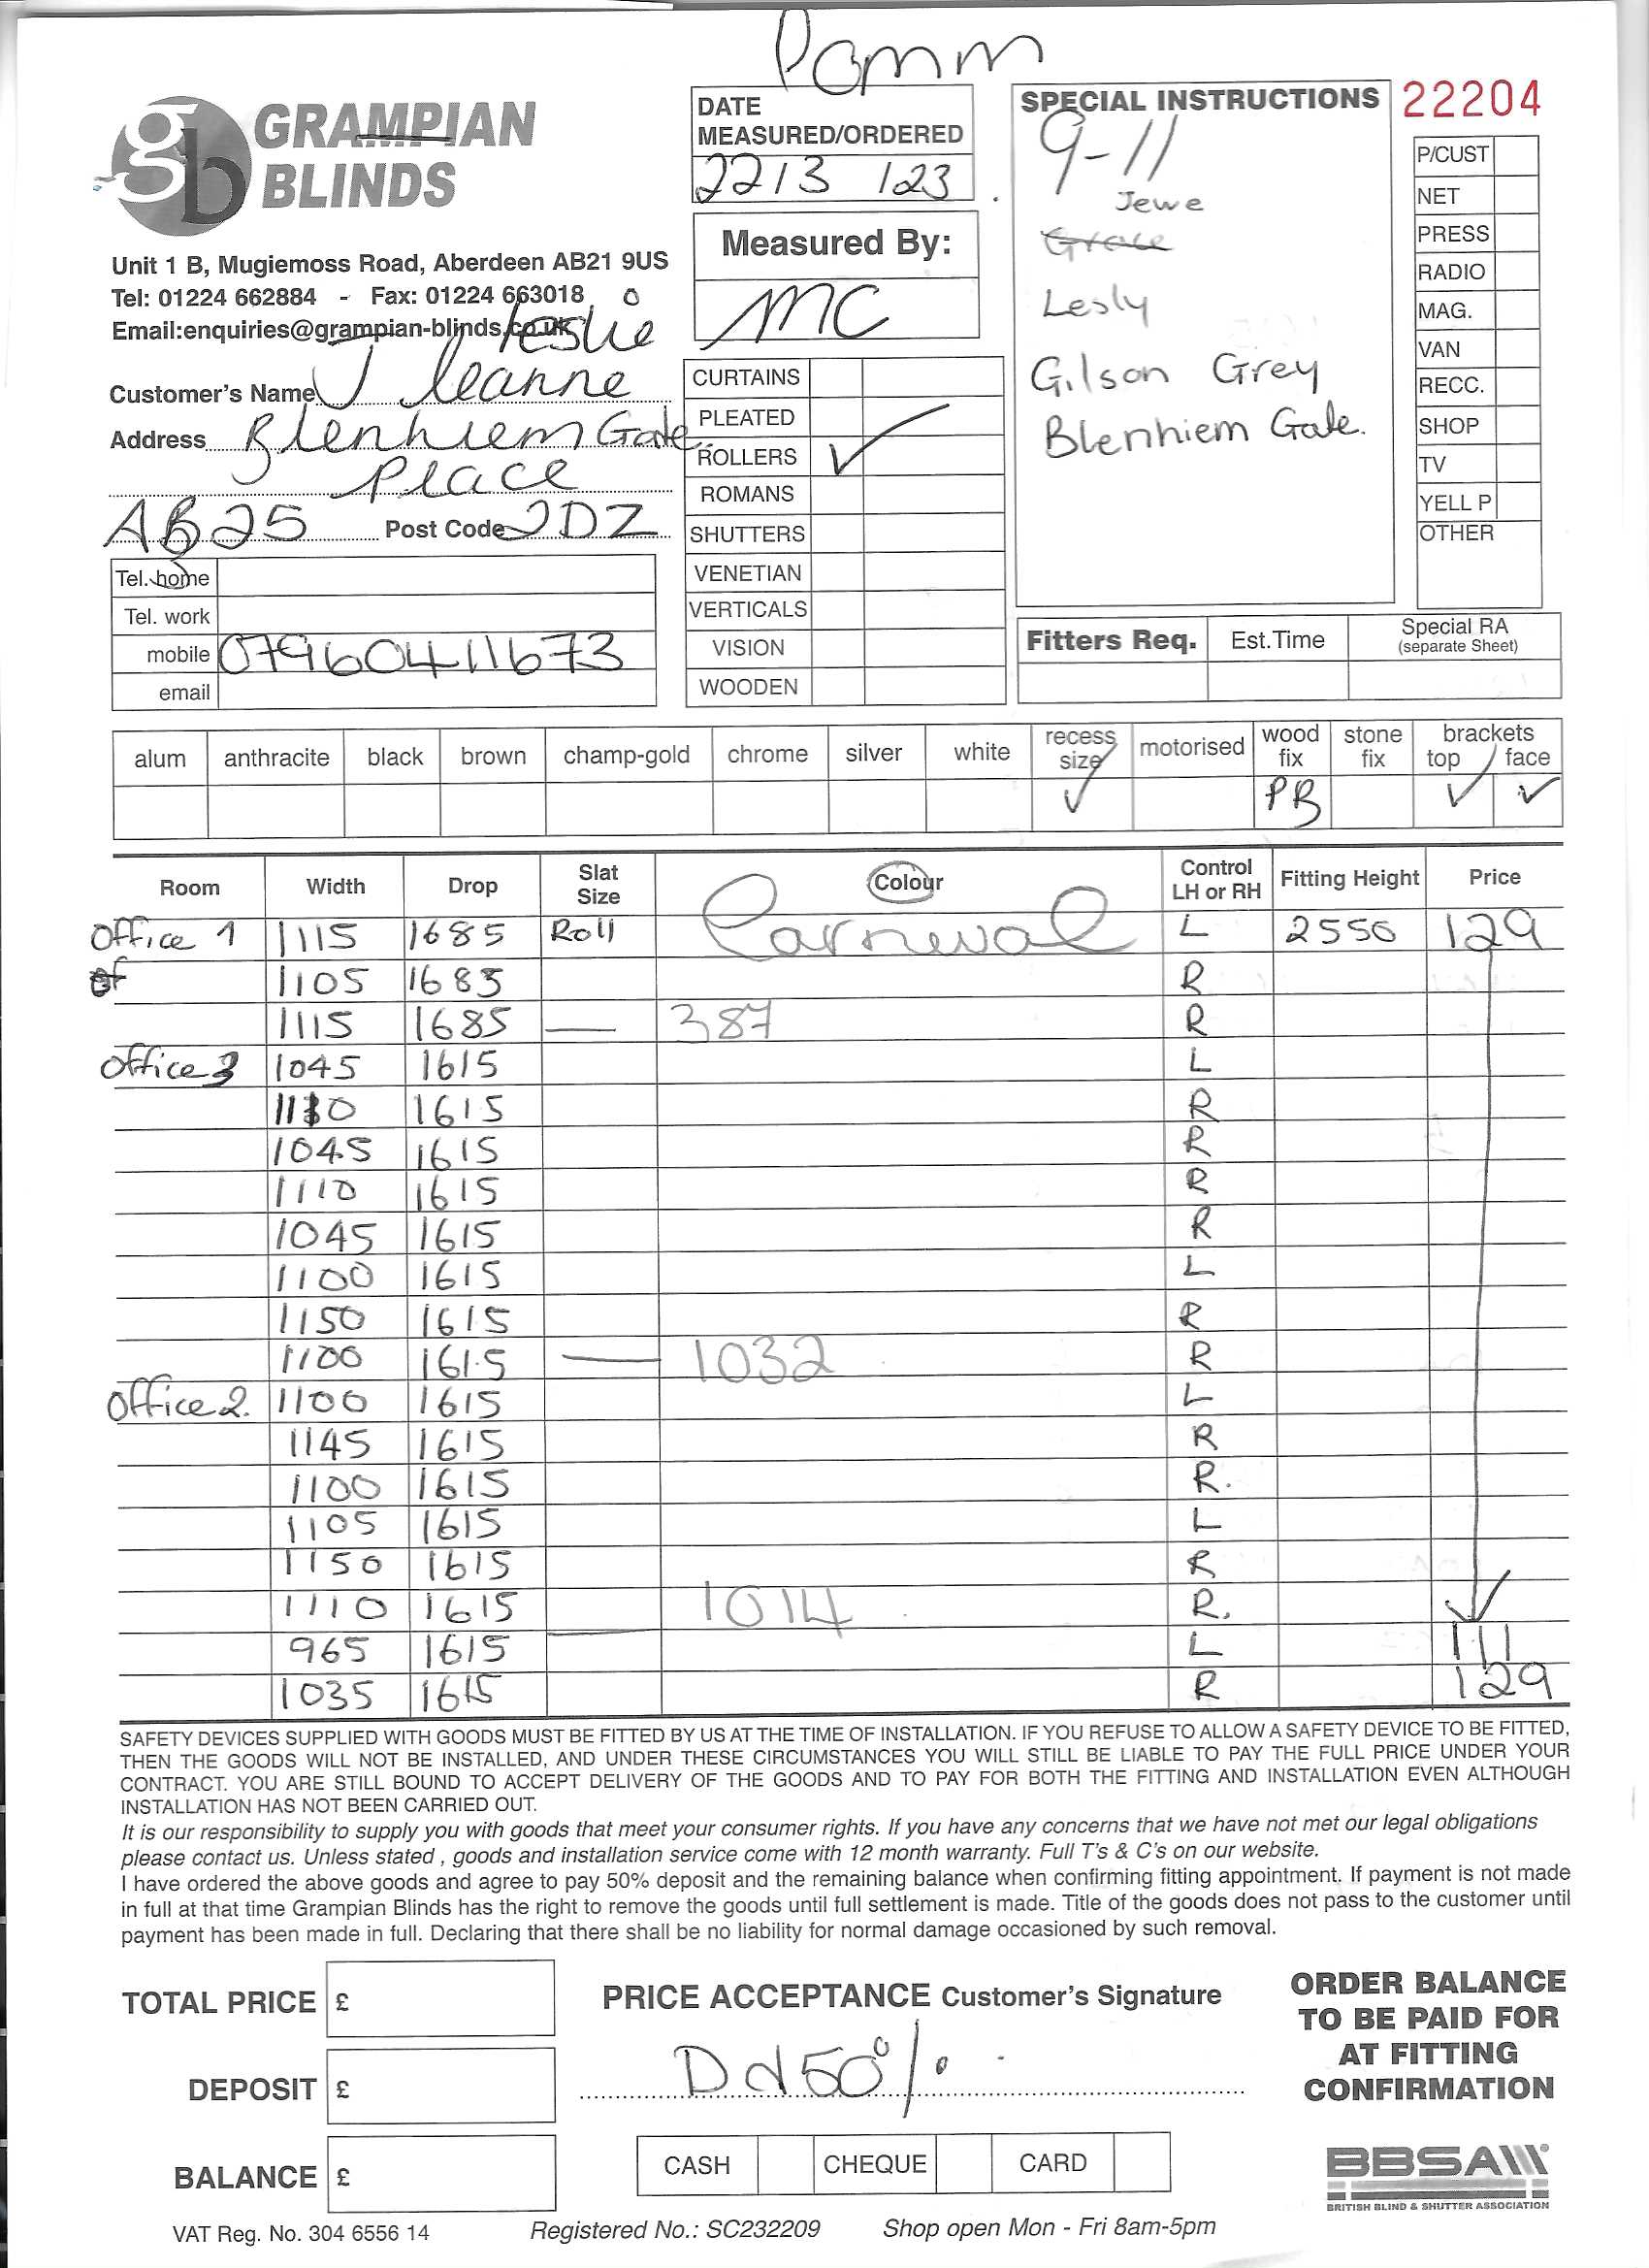 Comm
GRAMPIAN
BLINDS
gb
Unit 1 B, Mugiemoss Road, Aberdeen AB21 9US
Tel: 01224 662884 - Fax: 01224 663018
Email:enquiries@grampian-blinds.co.uk
Leslie
Customer's Name J leanne
Address Blenhiem Gate
Place
AB25 Post Code 2DZ
Tel. home
Tel. work
mobile 07960411673
email
DATE
MEASURED/ORDERED
22/3/23
Measured By:
MC
CURTAINS
PLEATED
ROLLERS ✓
ROMANS
SHUTTERS
VENETIAN
VERTICALS
VISION
WOODEN
SPECIAL INSTRUCTIONS
9-11
Jewe
Grace
Lesly
Gilson Grey
Blenhiem Gate.
22204
P/CUST
NET
PRESS
RADIO
MAG.
VAN
RECC.
SHOP
TV
YELL P
OTHER
Fitters Req. Est.Time Special RA
(separate Sheet)
alum anthracite black brown champ-gold chrome silver white recess size motorised wood fix stone fix brackets top / face
✓ PB ✓ ✓
Room Width Drop Slat Size Colour Control LH or RH Fitting Height Price
Office 1 1115 1685 Roll Carneval L 2550 129
of 1105 1685 R
1115 1685 — 387 R
Office 3 1045 1615 L
1110 1615 R
1045 1615 R
1110 1615 R
1045 1615 R
1100 1615 L
1150 1615 R
1100 1615 — 1032 R
Office 2. 1100 1615 L
1145 1615 R
1100 1615 R.
1105 1615 L
1150 1615 R
1110 1615 1014 R.
965 1615 L 111
1035 1615 R 129
SAFETY DEVICES SUPPLIED WITH GOODS MUST BE FITTED BY US AT THE TIME OF INSTALLATION. IF YOU REFUSE TO ALLOW A SAFETY DEVICE TO BE FITTED,
THEN THE GOODS WILL NOT BE INSTALLED, AND UNDER THESE CIRCUMSTANCES YOU WILL STILL BE LIABLE TO PAY THE FULL PRICE UNDER YOUR
CONTRACT. YOU ARE STILL BOUND TO ACCEPT DELIVERY OF THE GOODS AND TO PAY FOR BOTH THE FITTING AND INSTALLATION EVEN ALTHOUGH
INSTALLATION HAS NOT BEEN CARRIED OUT.
It is our responsibility to supply you with goods that meet your consumer rights. If you have any concerns that we have not met our legal obligations
please contact us. Unless stated , goods and installation service come with 12 month warranty. Full T's & C's on our website.
I have ordered the above goods and agree to pay 50% deposit and the remaining balance when confirming fitting appointment. If payment is not made
in full at that time Grampian Blinds has the right to remove the goods until full settlement is made. Title of the goods does not pass to the customer until
payment has been made in full. Declaring that there shall be no liability for normal damage occasioned by such removal.
TOTAL PRICE £
DEPOSIT £
BALANCE £
PRICE ACCEPTANCE Customer's Signature
D d 50%
CASH CHEQUE CARD
ORDER BALANCE
TO BE PAID FOR
AT FITTING
CONFIRMATION
BBSA
BRITISH BLIND & SHUTTER ASSOCIATION
VAT Reg. No. 304 6556 14 Registered No.: SC232209 Shop open Mon - Fri 8am-5pm